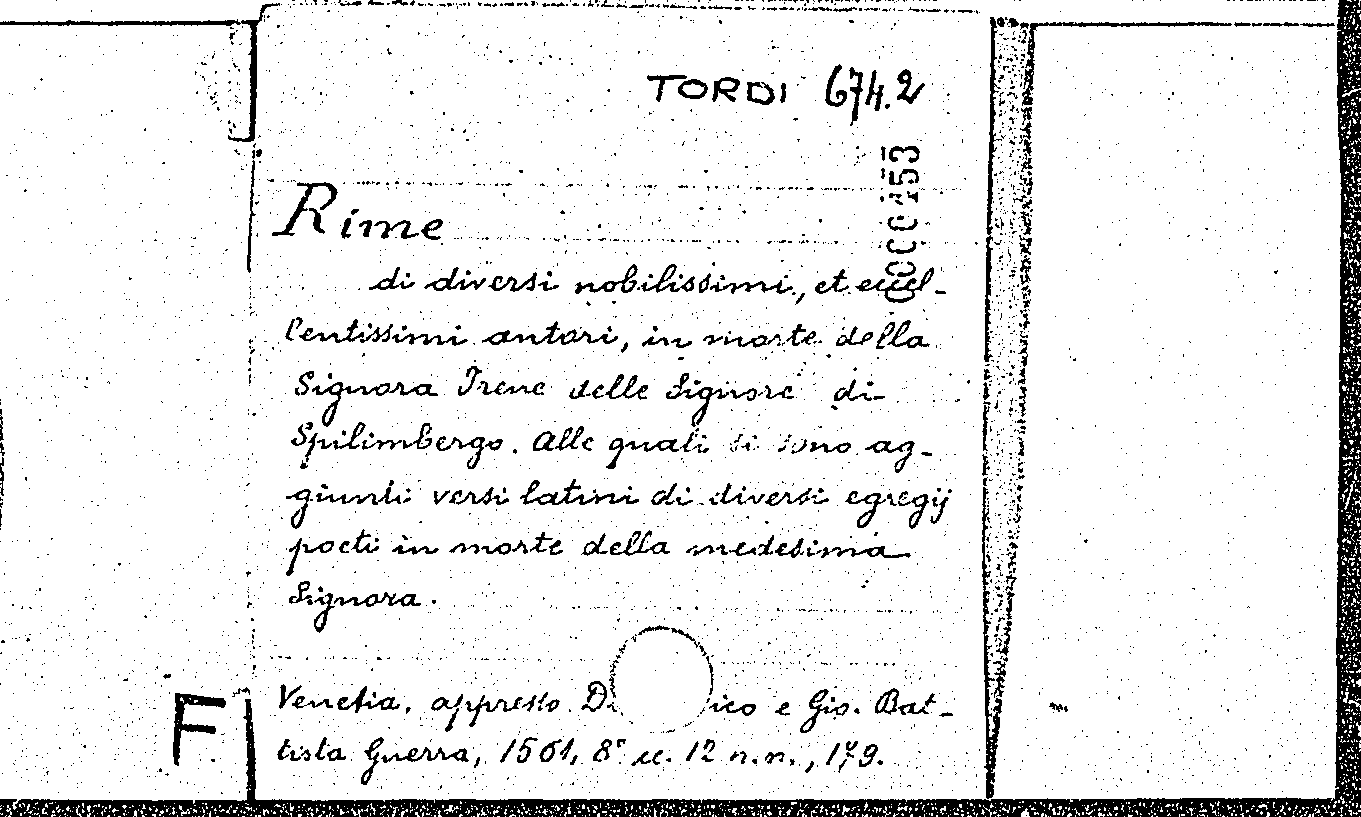 TORDI 674.2
Rime
di diversi nobilissimi, et eccel-
lentissimi autori, in morte della
Signora Irene delle Signore di
Spilimbergo. Alle quali si sono ag-
giunti versi latini di diversi egregij
poeti in morte della medesima
Signora.
Venetia, appresso D ico e Gio. Bat-
tista Guerra, 1561, 8° cc. 12 n.n., 179.
F